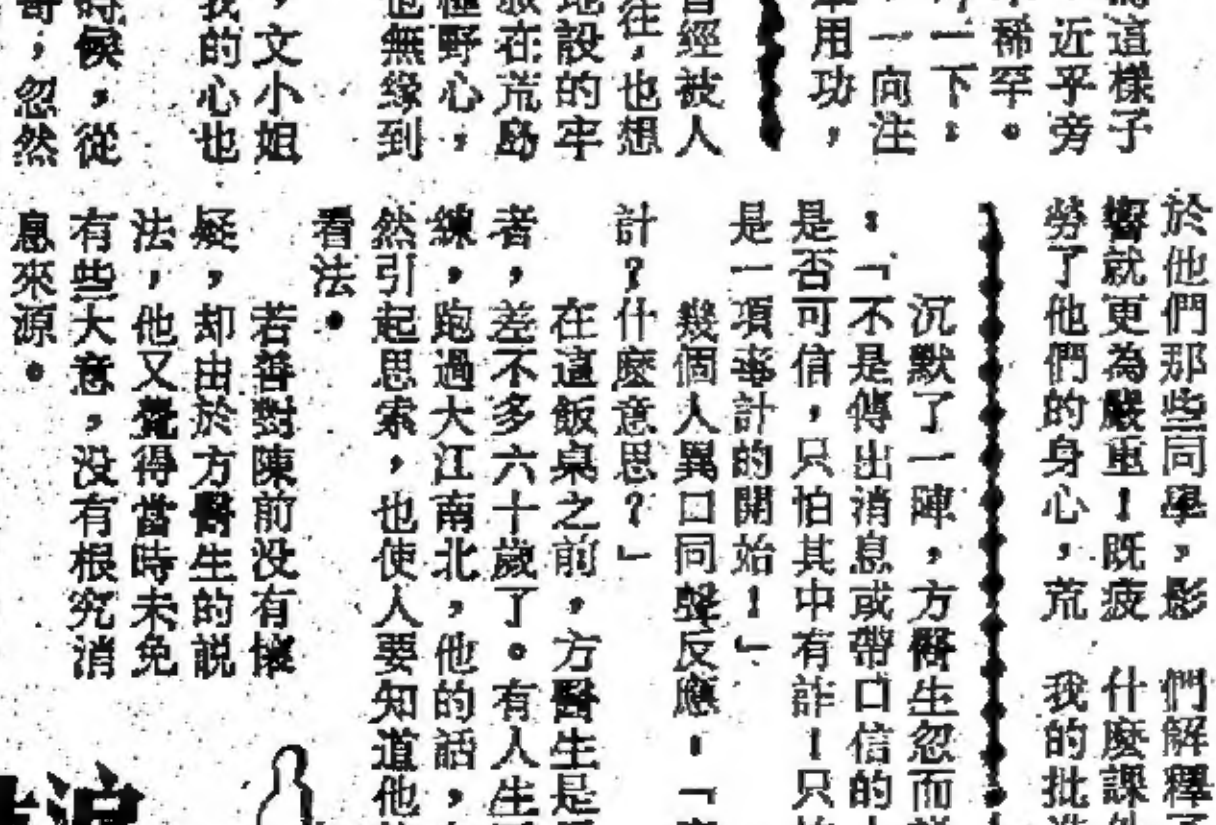 這樣子
近乎旁
稀罕。
一下，
一向注
用功，
經被人
往，也想
地設的牢
放在荒島
野心，
也無緣到
，文小姐
我的心也
時候，從
哥，忽然
於他們那些同學，影
響就更為嚴重！既疲
勞了他們的身心，荒
們解釋了
什麼課外
我的批
沉默了一陣，方醫生忽而
：「不是傳出消息或帶口信的
是否可信，只怕其中有詐！只怕
是一項毒計的開始！」
幾個人異口同聲反應：「
計？什麼意思？」
在這飯桌之前，方醫生是
者，差不多六十歲了。有人生
練，跑過大江南北，他的話，
然引起思索，也使人要知道他
看法。
若善對陳前沒有懷
疑，却由於方醫生的説
法，他又覺得當時未免
有些大意，没有根究消
息來源。
淚